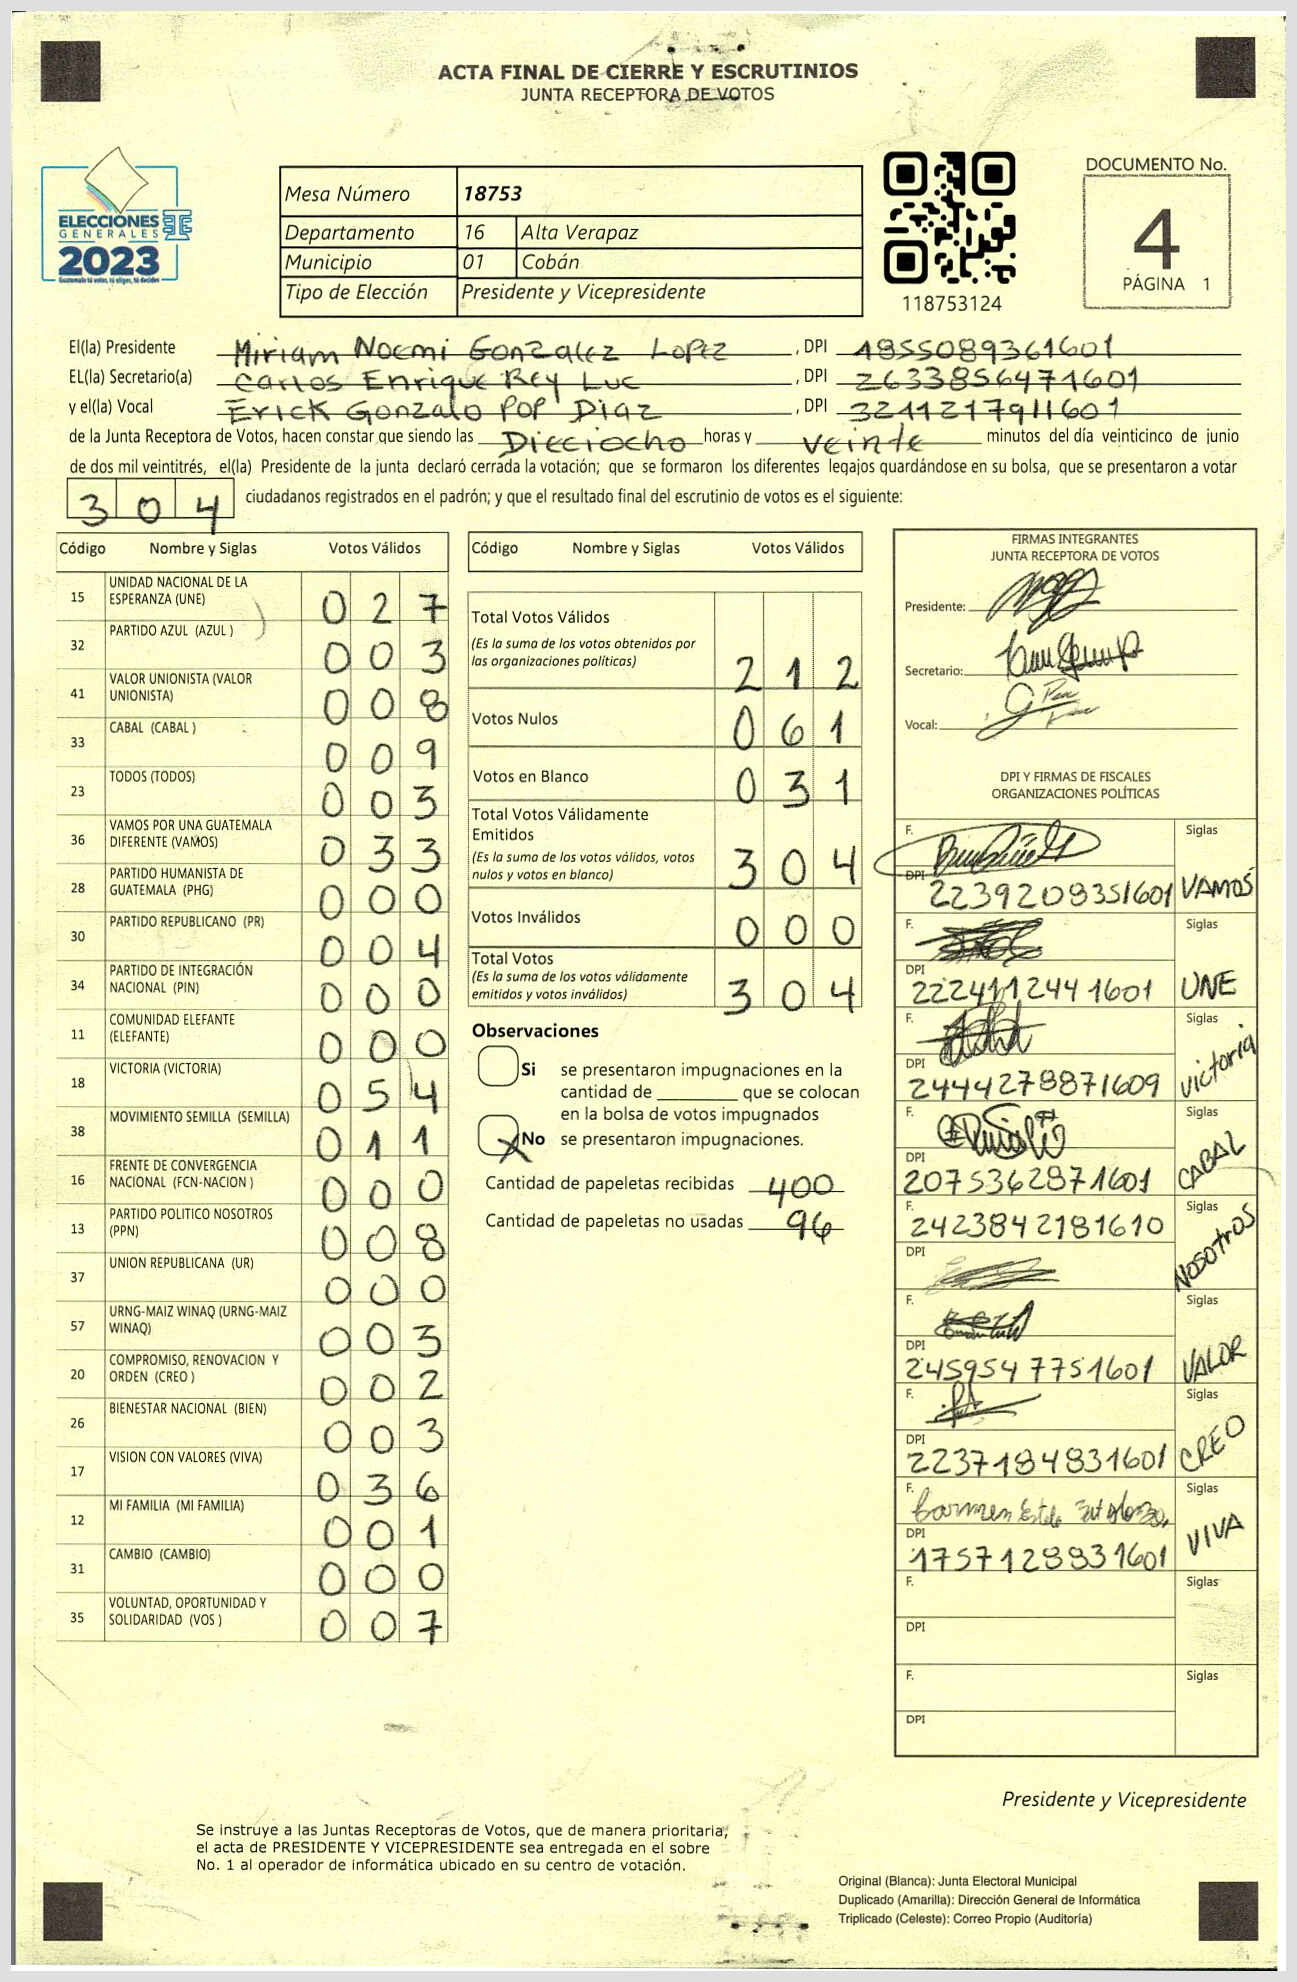 ACTA FINAL DE CIERRE Y ESCRUTINIOS
JUNTA RECEPTORA DE VOTOS
ELECCIONES
GENERALES
2023
Guatemala tú votas, tú eliges, tú decides
Mesa Número 18753
Departamento 16 Alta Verapaz
Municipio 01 Cobán
Tipo de Elección Presidente y Vicepresidente
118753124
DOCUMENTO No.
4
PÁGINA 1
El(la) Presidente Miriam Noemi Gonzalez Lopez , DPI 1855089361601
EL(la) Secretario(a) Carlos Enrique Rey Luc , DPI 2633856471601
y el(la) Vocal Erick Gonzalo Pop Diaz , DPI 3211217911601
de la Junta Receptora de Votos, hacen constar que siendo las Dieciocho horas y veinte minutos del día veinticinco de junio
de dos mil veintitrés, el(la) Presidente de la junta declaró cerrada la votación; que se formaron los diferentes legajos quardándose en su bolsa, que se presentaron a votar
304 ciudadanos registrados en el padrón; y que el resultado final del escrutinio de votos es el siguiente:
Código Nombre y Siglas Votos Válidos
15 UNIDAD NACIONAL DE LA ESPERANZA (UNE) 027
32 PARTIDO AZUL (AZUL ) 003
41 VALOR UNIONISTA (VALOR UNIONISTA) 008
33 CABAL (CABAL ) 009
23 TODOS (TODOS) 003
36 VAMOS POR UNA GUATEMALA DIFERENTE (VAMOS) 033
28 PARTIDO HUMANISTA DE GUATEMALA (PHG) 000
30 PARTIDO REPUBLICANO (PR) 004
34 PARTIDO DE INTEGRACIÓN NACIONAL (PIN) 000
11 COMUNIDAD ELEFANTE (ELEFANTE) 000
18 VICTORIA (VICTORIA) 054
38 MOVIMIENTO SEMILLA (SEMILLA) 011
16 FRENTE DE CONVERGENCIA NACIONAL (FCN-NACION ) 000
13 PARTIDO POLITICO NOSOTROS (PPN) 008
37 UNION REPUBLICANA (UR) 000
57 URNG-MAIZ WINAQ (URNG-MAIZ WINAQ) 003
20 COMPROMISO, RENOVACION Y ORDEN (CREO ) 002
26 BIENESTAR NACIONAL (BIEN) 003
17 VISION CON VALORES (VIVA) 036
12 MI FAMILIA (MI FAMILIA) 001
31 CAMBIO (CAMBIO) 000
35 VOLUNTAD, OPORTUNIDAD Y SOLIDARIDAD (VOS ) 007
Código Nombre y Siglas Votos Válidos
Total Votos Válidos 212
(Es la suma de los votos obtenidos por
las organizaciones políticas)
Votos Nulos 061
Votos en Blanco 031
Total Votos Válidamente
Emitidos 304
(Es la suma de los votos válidos, votos
nulos y votos en blanco)
Votos Inválidos 000
Total Votos 304
(Es la suma de los votos válidamente
emitidos y votos inválidos)
Observaciones
Si se presentaron impugnaciones en la
cantidad de ________ que se colocan
en la bolsa de votos impugnados
X No se presentaron impugnaciones.
Cantidad de papeletas recibidas 400
Cantidad de papeletas no usadas 96
FIRMAS INTEGRANTES
JUNTA RECEPTORA DE VOTOS
Presidente:
Secretario:
Vocal:
DPI Y FIRMAS DE FISCALES
ORGANIZACIONES POLÍTICAS
F. Siglas
DPI 2239208351601 VAMOS
F. Siglas
DPI 2224112441601 UNE
F. Siglas
DPI 2444278871609 victoria
F. Siglas
DPI 2075362871601 CABAL
F. 2423842181610 Siglas
DPI NOSOTROS
F. Siglas
DPI 2459547751601 VALOR
F. Siglas
DPI 2237184831601 CREO
F. Carmen Siglas
DPI 1757128831601 VIVA
F. Siglas
DPI
F. Siglas
DPI
Presidente y Vicepresidente
Se instruye a las Juntas Receptoras de Votos, que de manera prioritaria,
el acta de PRESIDENTE Y VICEPRESIDENTE sea entregada en el sobre
No. 1 al operador de informática ubicado en su centro de votación.
Original (Blanca): Junta Electoral Municipal
Duplicado (Amarilla): Dirección General de Informática
Triplicado (Celeste): Correo Propio (Auditoría)